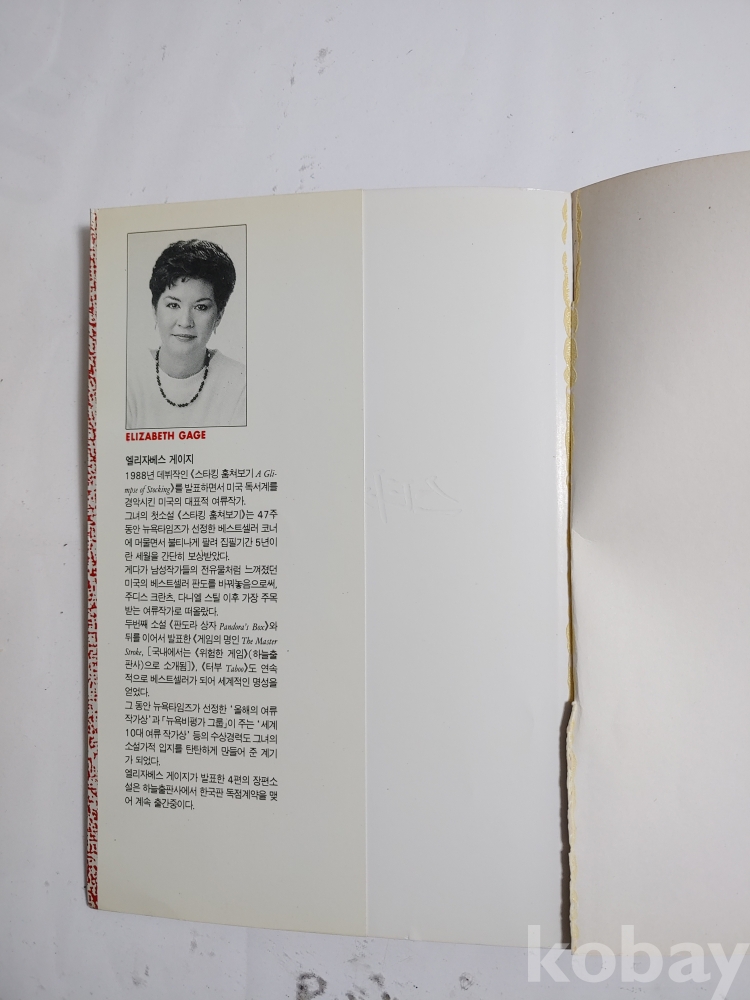 ELIZABETH GAGE
엘리자베스 게이지
1988년 데뷔작인 《스타킹 훔쳐보기 A Gli-
mpse of Stocking》를 발표하면서 미국 독서계를
경악시킨 미국의 대표적 여류작가.
그녀의 첫소설 《스타킹 훔쳐보기》는 47주
동안 뉴욕타임즈가 선정한 베스트셀러 코너
에 머물면서 불티나게 팔려 집필기간 5년이
란 세월을 간단히 보상받았다.
게다가 남성작가들의 전유물처럼 느껴졌던
미국의 베스트셀러 판도를 바꿔놓음으로써,
주디스 크란츠, 다니엘 스틸 이후 가장 주목
받는 여류작가로 떠올랐다.
두번째 소설 《판도라 상자 Pandora's Box》와
뒤를 이어서 발표한 《게임의 명인 The Master
Stroke, [국내에서는 《위험한 게임》(하늘출
판사)으로 소개됨]》, 《터부 Taboo》도 연속
적으로 베스트셀러가 되어 세계적인 명성을
얻었다.
그 동안 뉴욕타임즈가 선정한 '올해의 여류
작가상'과 「뉴욕비평가 그룹」이 주는 '세계
10대 여류 작가상' 등의 수상경력도 그녀의
소설가적 입지를 탄탄하게 만들어 준 계기
가 되었다.
엘리자베스 게이지가 발표한 4편의 장편소
설은 하늘출판사에서 한국판 독점계약을 맺
어 계속 출간중이다.
kobay